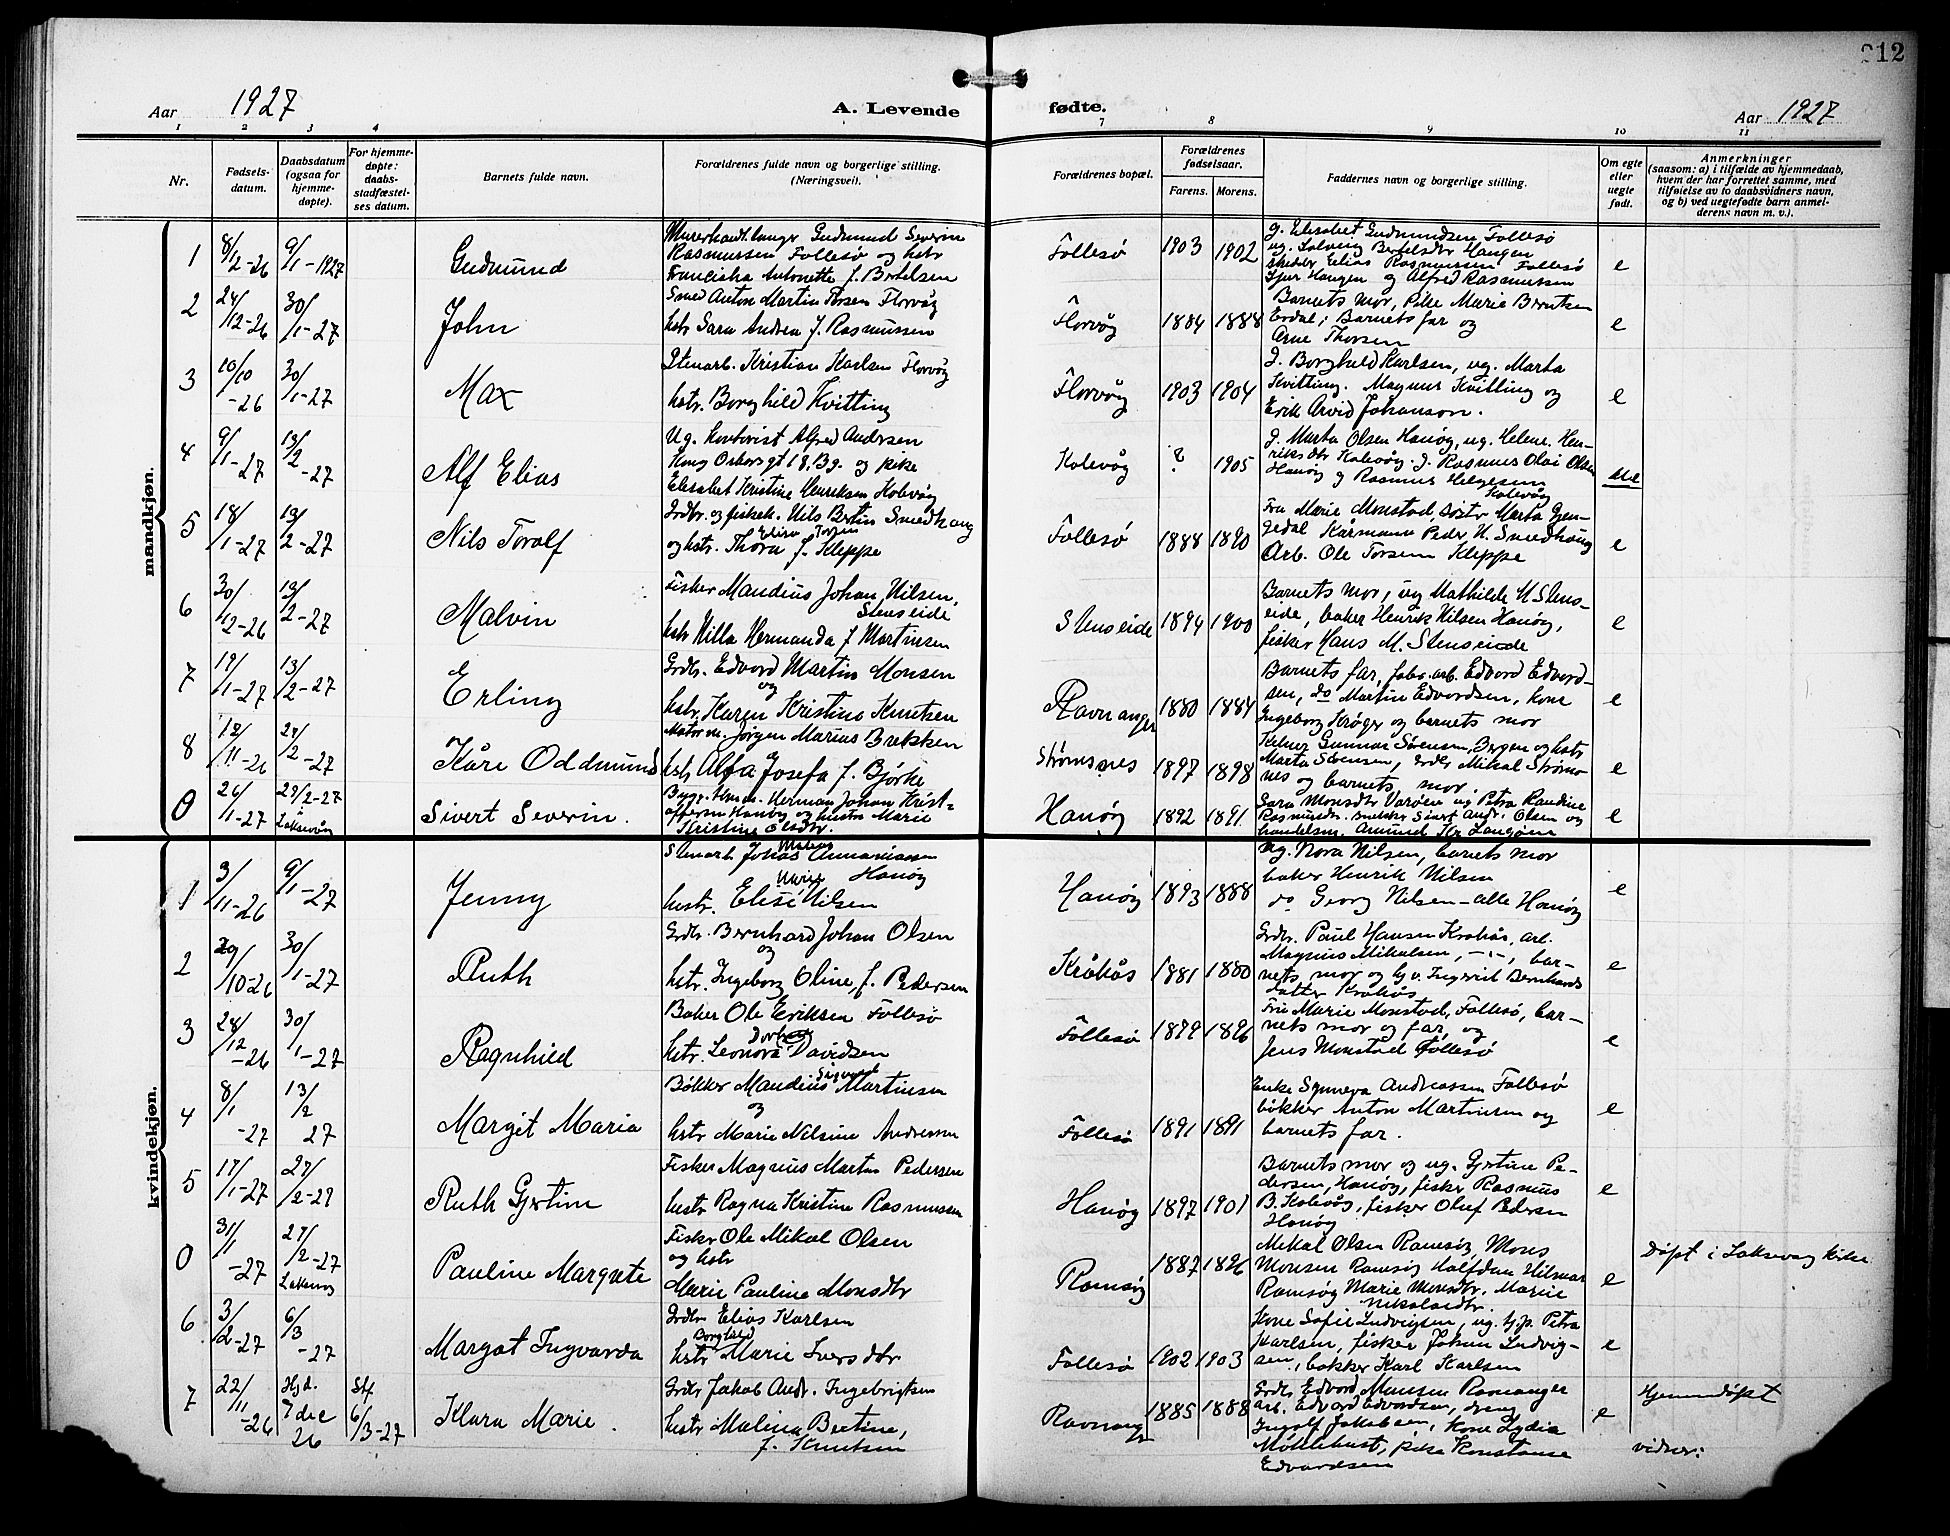 212
Aar 1927
A. Levende
fødte.
Aar 1927
1 2 3 4 7 8 9 10 11
Nr.
Fødsels-
datum.
Daabsdatum
(ogsaa for
hjemme-
døpte).
For hjemme-
døpte:
daabs-
stadfæstel-
ses datum.
Barnets fulde navn.
Forældrenes fulde navn og borgerlige stilling.
(Næringsvei).
Forældrenes bopæl.
Forældrenes
fødselsaar.
Farens. Morens.
Faddernes navn og borgerlige stilling.
Om egte
eller
uegte
født.
Anmerkninger
(saasom: a) i tilfælde av hjemmedaab,
hvem der har forrettet samme, med
tilføielse av to daabsvidners navn,
og b) ved uegtefødte barn anmel-
derens navn m. v.).
mandkjøn.
1 8/12-26 9/1-1927 Gudmund
Gudmund Severin
Rasmussen Follesø og hstr
Antonette f. Bertelsen
Follesø 1903 1902
g. Elisabet Gudmundsen Follesø
ug. Solveig Bertelsdtr Haugen
Elias Rasmussen Follesø
Haugen og Alfred Rasmussen
e
2 24/12-26 30/1-27 John
Smed Anton Martin Torsen Florvåg
hstr Sara Andrea f. Rasmussen
Florvåg 1884 1888
Barnets mor, Pike Marie Berntsen
Erdal; Barnets far og
Arne Thorsen
e
3 10/10-26 30/1-27 Max
Stenarb. Kristian Karlsen Florvåg
hstr. Borghild Kvitting
Florvåg 1903 1904
g. Borghild Karlsen, ug. Marta
Kvitting. Magnus Kvitting og
Erik Arvid Johanson.
e
4 9/1-27 13/2-27 Alf Elias
Ug. Alfred Andersen
18. Bg. og pike
Elisabet Kristine Henriksen Kolevåg
Kolevåg ? 1905
g. Marta Olsen Hanøy, ug. Helene Hen-
riksdtr Kolevåg. g. Rasmus Olai Olsen
Hanøy g Rasmus Helgesen
Kolevåg
ue
5 18/1-27 13/2-27 Nils Toralf
Grdbr. og fiskeh. Nils Bertin Smedhaug
Elise Torsen
og hstr. Thora f. Kleppe
Follesø 1888 1890
Fru Marie Monstad, søstr Marta Gjen-
gedal Kårmann Peder N. Smedhaug
Arb. Ole Torsen Kleppe
e
6 30/12-26 13/2-27 Malvin
Fisker Mandius Johan Nilsen,
Stenseide
hstr Nilla Hermanda f Martinsen
Stenseide 1894 1900
Barnets mor, ug Mathilde M Stens-
eide, baker Henrik Nilsen Hanøy,
fisker Hans M. Stenseide
e
7 19/1-27 13/2-27 Erling
Grdbr. Edvard Martin Monsen
og
hstr. Karen Kristine Knutsen
Ravnanger 1880 1884
Barnets far, fabr. arb. Edvard Edvard-
sen, do Martin Edvardsen, kone
Ingeborg Krøger og barnets mor
e
8 12/11-26 27/2-27 Kåre Oddmund
Motorm. Jørgen Marius Brekken
hstr Alfa Josefa f. Bjørke
Strømsnes 1897 1898
Kelner Gunnar Sørensen, Bergen og hstr
Marta Sørensen, Grdbr Mikal Strøms-
nes og barnets mor.
e
0 26/1-27 27/2-27 Laksevåg Sivert Severin.
Herman Johan Krist-
offersen Hanøy og hustru Marie
Kristine Olsdtr.
Hanøy 1892 1891
Sara Monsdtr Varøen ug Petra Randine
Rasmusdtr. snekker Sivert Andr. Olsen og
handelsm. Amund Kr. Langøen
e
kvindekjøn.
1 3/11-26 9/1-27 Jenny
Stenarb Johas Mathias Annaniassen
Hanøy
Marie
hustr. Elise Nilsen
Hanøy 1893 1888
Ug. Nora Nilsen, barnets mor
baker Henrik Nilsen
do Georg Nilsen - alle Hanøy
e
2 29/10-26 30/1-27 Ruth
Grdbr. Bernhard Johan Olsen
og
hstr. Ingeborg Oline, f. Pedersen
Kråkås 1881 1880
Grdbr. Paul Hansen Kråkås, arb.
Magnus Mikalsen, -"-, bar-
nets mor og gv. Ingerid Bernhards
datter Kråkås
e
3 28/12-26 30/1-27 Ragnhild
Baker Ole Eriksen Follesø
hstr. Leonora Davidsen
Follesø 1899 1896
Fru Marie Monstad, Follesø, bar-
nets mor og far, og
Jens Monstad Follesø
e
4 8/1-27 13/2 27 Margit Maria
Bøkker Mandius Sigvard Martinsen
og
hstr Marie Nilsine Andressen
Follesø 1891 1891
Enke Synneva Andreassen Follesø
bøkker Anton Martinsen og
barnets far.
e
5 17/1-27 27/2-27 Ruth Gjertine
Fisker Magnus Martin Pedersen
hustr Ragna Kristine Rasmussen
Hanøy 1897 1901
Barnets mor og ug. Gjertine Pe-
dersen, Hanøy, fisker Rasmus
B. Kolevåg, fisker Oluf Pedersen
Hanøy
e
0 31/1-27 27/2-27 Laksevåg Pauline Margrete
Fisker Ole Mikal Olsen
og hstr
Marie Pauline Monsdtr
Ramsøy 1887 1896
Mikal Olsen Ramsøy, Mons
Monsen Ramsøy Halfdan Hilmar
Ramsøy Marie Monsdtr. Marie
Nikolaidtr.
e
Døpt i Laksevåg kirke
6 3/2-27 6/3-27 Margot Ingvarda
Grdbr Elias Karlsen
Borghild
hstr Marie Iversdtr
Follesø 1902 1903
Kone Sofie Ludvigsen, ug. Petra
Karlsen, fisker Johan Ludvig-
sen, bøkker Karl Karlsen
e
7 22/11-26 Hjd. 7 dec 26 Stf 6/3-27 Klara Marie.
Grdbr Jakob Andr. Ingebrigtsen
hustr Malina Bertine,
f. Knutsen
Ravnanger 1885 1888
Grdbr Edvard Monsen Ravnanger
arb. Edvard Edvardsen, dreng
Ingolf Jakobsen, Kone Lydia
Møklebust, pike Konstanse
Edvardsen
e
Hjemmedøpt
vidner: